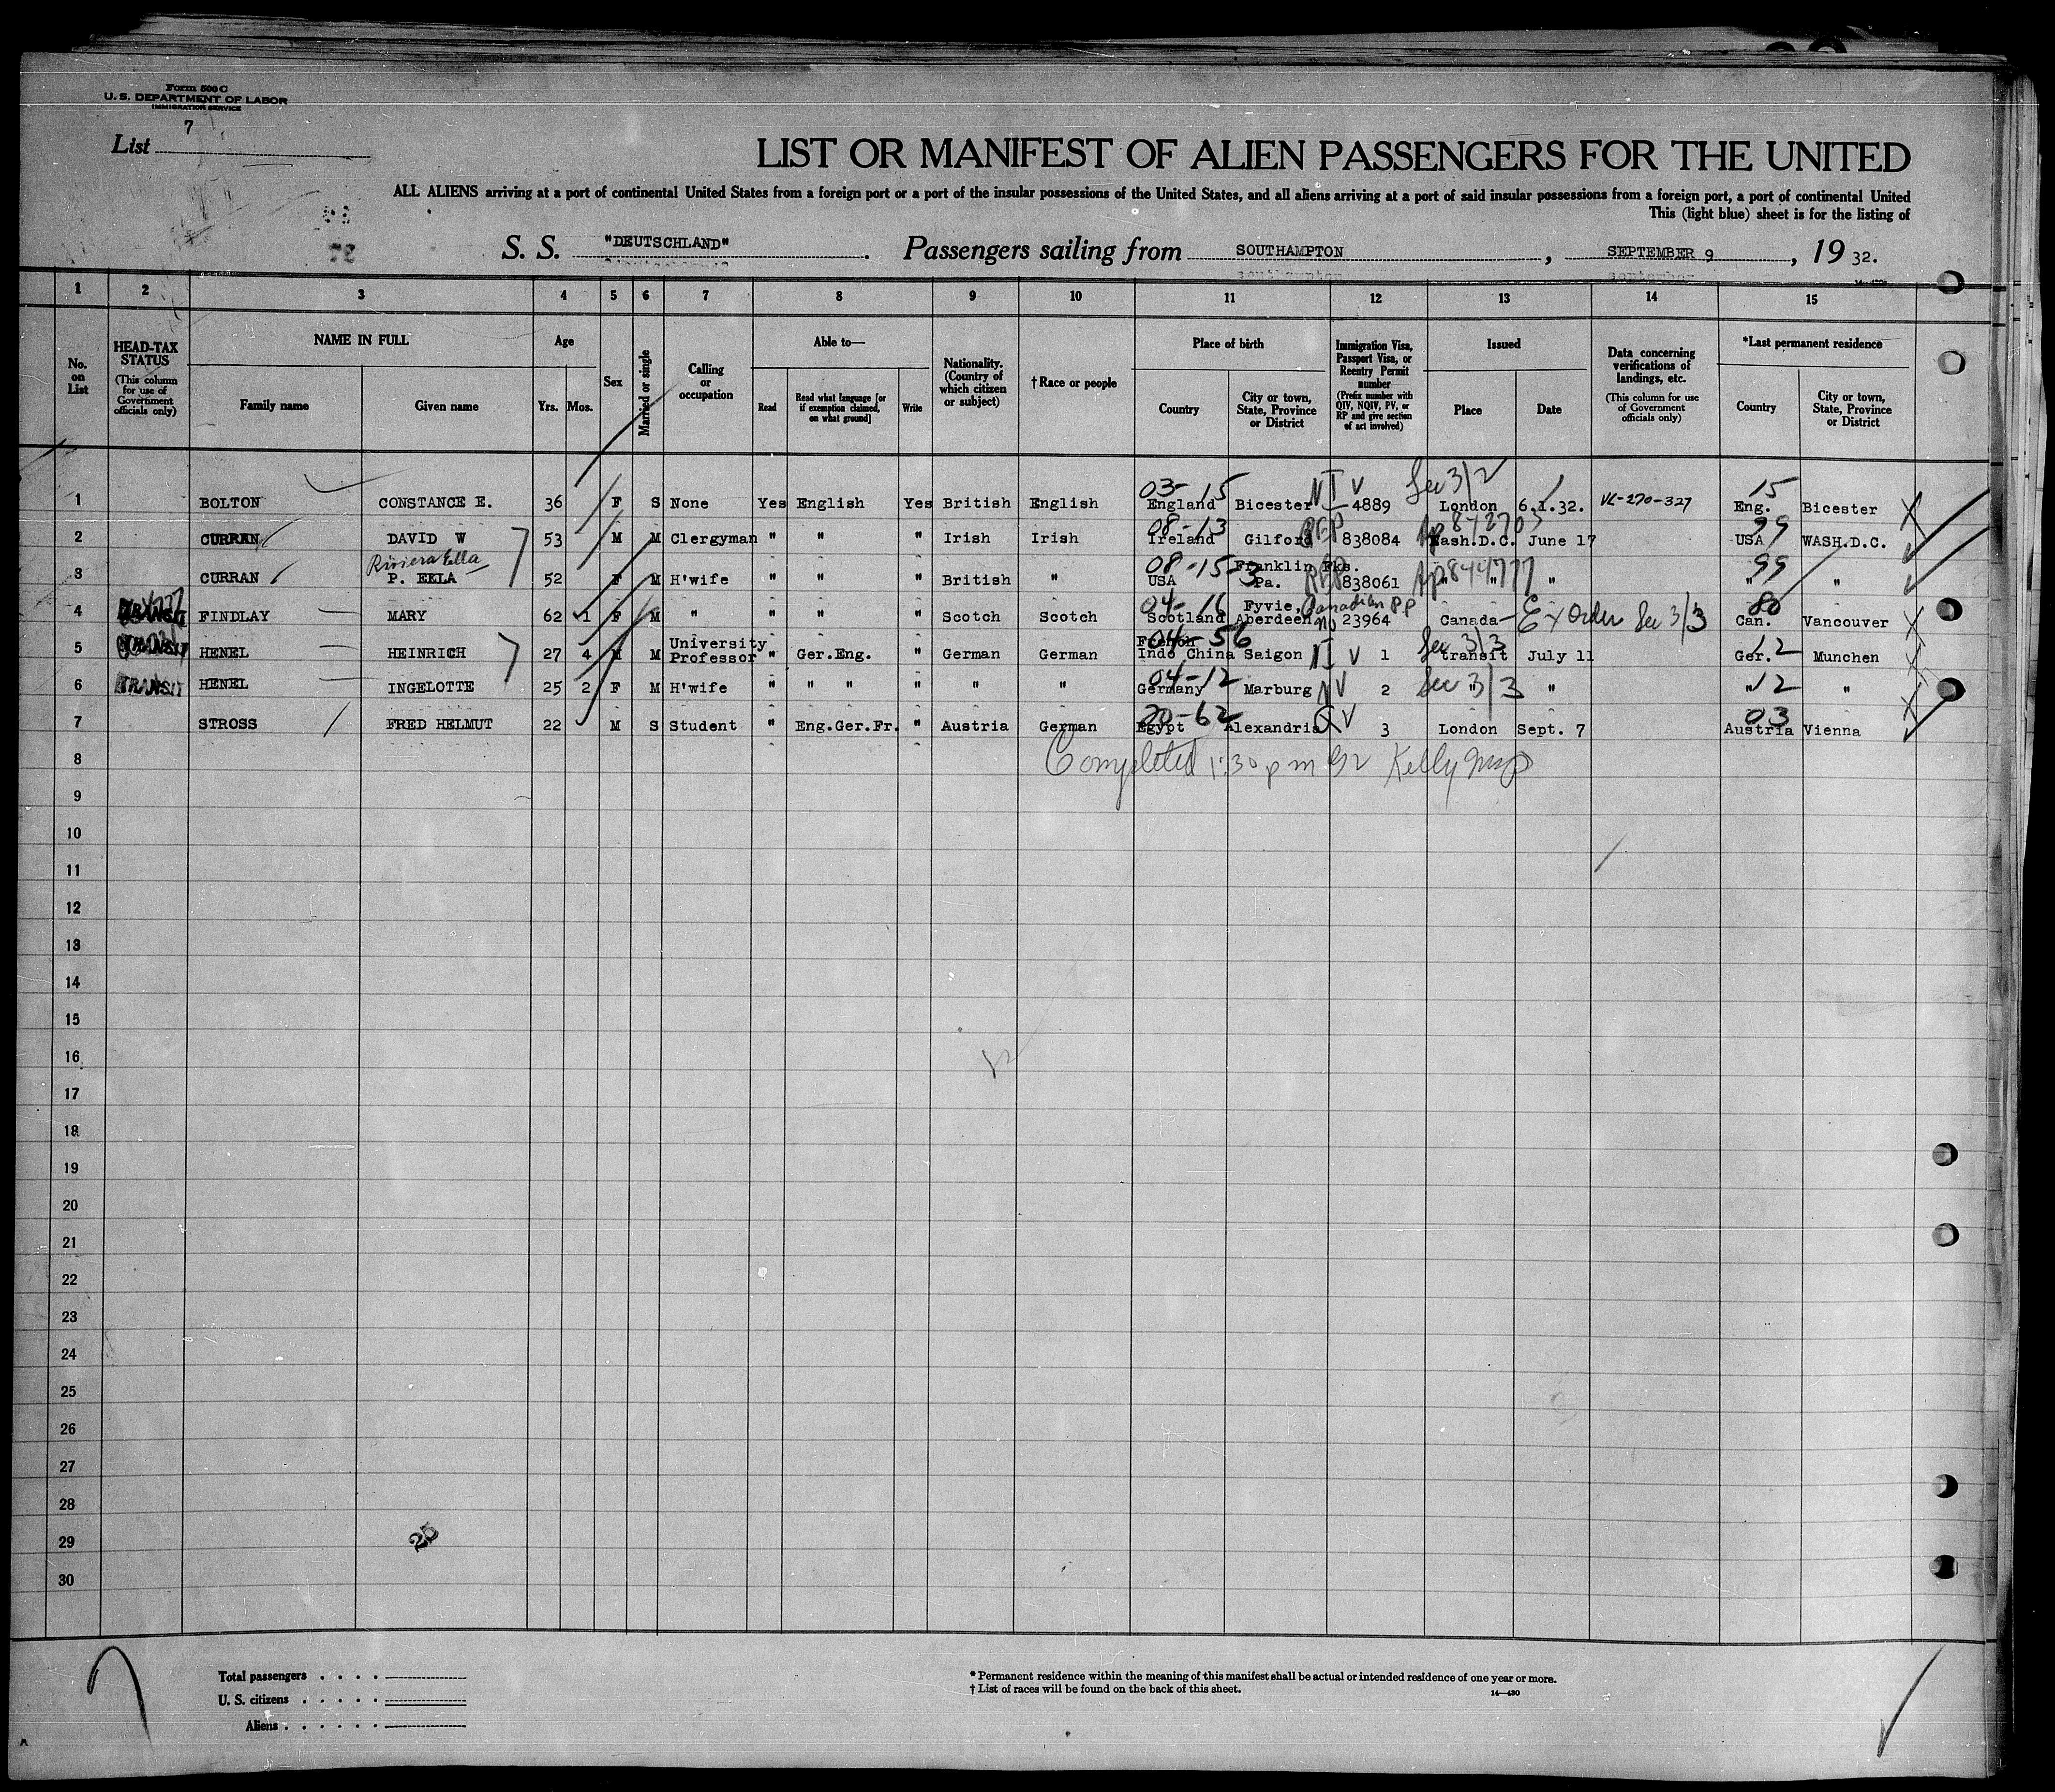 Form 500 C
U. S. DEPARTMENT OF LABOR
IMMIGRATION SERVICE
7
List
LIST OR MANIFEST OF ALIEN PASSENGERS FOR THE UNITED
ALL ALIENS arriving at a port of continental United States from a foreign port or a port of the insular possessions of the United States, and all aliens arriving at a port of said insular possessions from a foreign port, a port of continental United
This (light blue) sheet is for the listing of
S. S. "DEUTSCHLAND" . Passengers sailing from SOUTHAMPTON , SEPTEMBER 9 , 19 32.
1 2 3 4 5 6 7 8 9 10 11 12 13 14 15
No. on List
HEAD-TAX STATUS (This column for use of Government officials only)
NAME IN FULL
Family name Given name
Age
Yrs. Mos.
Sex
Married or single
Calling or occupation
Able to—
Read Read what language [or if exemption claimed, on what ground] Write
Nationality. (Country of which citizen or subject)
†Race or people
Place of birth
Country City or town, State, Province or District
Immigration Visa, Passport Visa, or Reentry Permit number (Prefix number with QIV, NQIV, PV, or RP and give section of act involved)
Issued
Place Date
Data concerning verifications of landings, etc. (This column for use of Government officials only)
*Last permanent residence
Country City or town, State, Province or District
03-15 NIV Sec 3/2 15
1 BOLTON CONSTANCE E. 36 F S None Yes English Yes British English England Bicester 4889 London 6.1.32. VL-270-327 Eng. Bicester
08-13 REP Ap 842703 99
2 CURRAN DAVID W 53 M M Clergyman " " " Irish Irish Ireland Gilford 838084 Wash.D.C. June 17 USA WASH.D.C.
Riviera Ella 08-15-3 Franklin Pks. REP Ap 844777 99
3 CURRAN P. EELA 52 F M H'wife " " " British " USA Pa. 838061 " " " " "
04-16 Fyvie, Canadian PP 80
4 TRANSIT FINDLAY MARY 62 1 F M " " " " Scotch Scotch Scotland Aberdeen No 23964 Canada Ex Order Sec 3/3 Can. Vancouver
University French 04-56 Sec 3/3 12
5 TRANSIT HENEL HEINRICH 27 4 M M Professor " Ger.Eng. " German German Indo China Saigon NI V 1 transit July 11 Ger. Munchen
04-12 Sec 3/3 12
6 TRANSIT HENEL INGELOTTE 25 2 F M H'wife " " " " " " Germany Marburg NV 2 " " " "
20-62 03
7 STROSS FRED HELMUT 22 M S Student " Eng.Ger.Fr. " Austria German Egypt Alexandria QV 3 London Sept. 7 Austria Vienna
8 Completed 1:30 pm Kelly Insp
9
10
11
12
13
14
15
16
17
18
19
20
21
22
23
24
25
26
27
28
29
25
30
Total passengers . . . .
U. S. citizens . . . . .
Aliens . . . . . .
* Permanent residence within the meaning of this manifest shall be actual or intended residence of one year or more.
† List of races will be found on the back of this sheet.
14—430